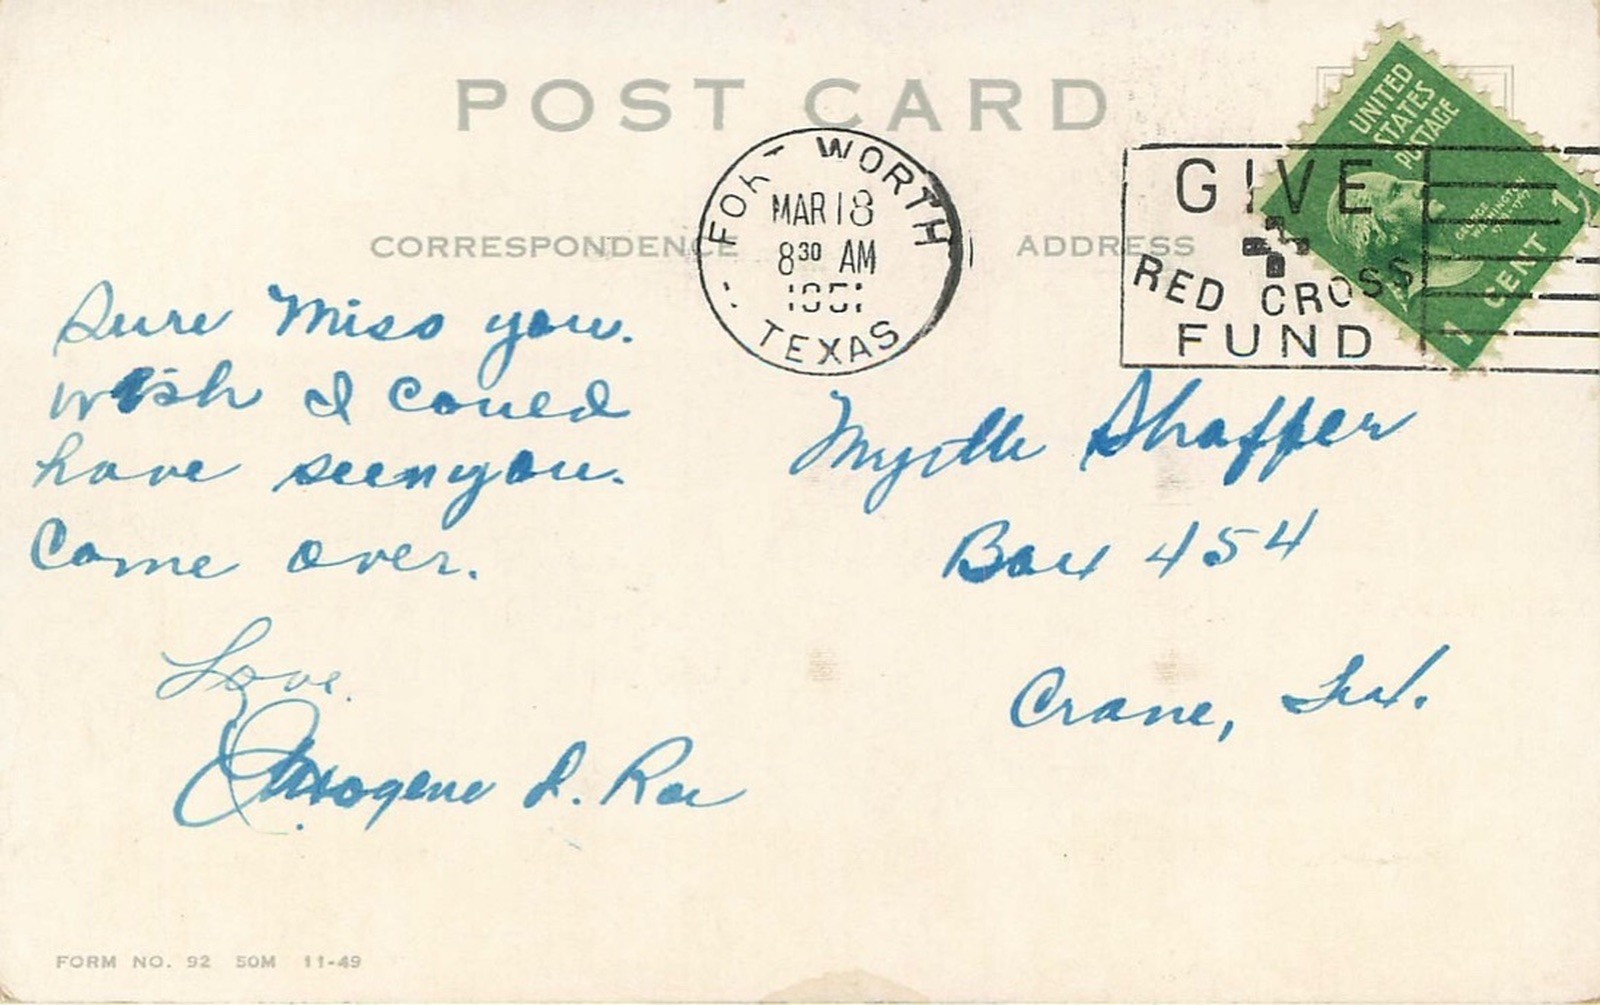 POST CARD
FORT WORTH
MAR 18
8 30 AM
1951
TEXAS
GIVE
RED CROSS
FUND
UNITED
STATES
POSTAGE
GEORGE
WASHINGTON
1
1 CENT
CORRESPONDENCE
ADDRESS
Sure Miss you.
wish I could
have seen you.
Come over.
Love.
Imogene D. Roe
Myrtle Shaffer
Box 454
Crane, Tex.
FORM NO. 92 50M 11-49